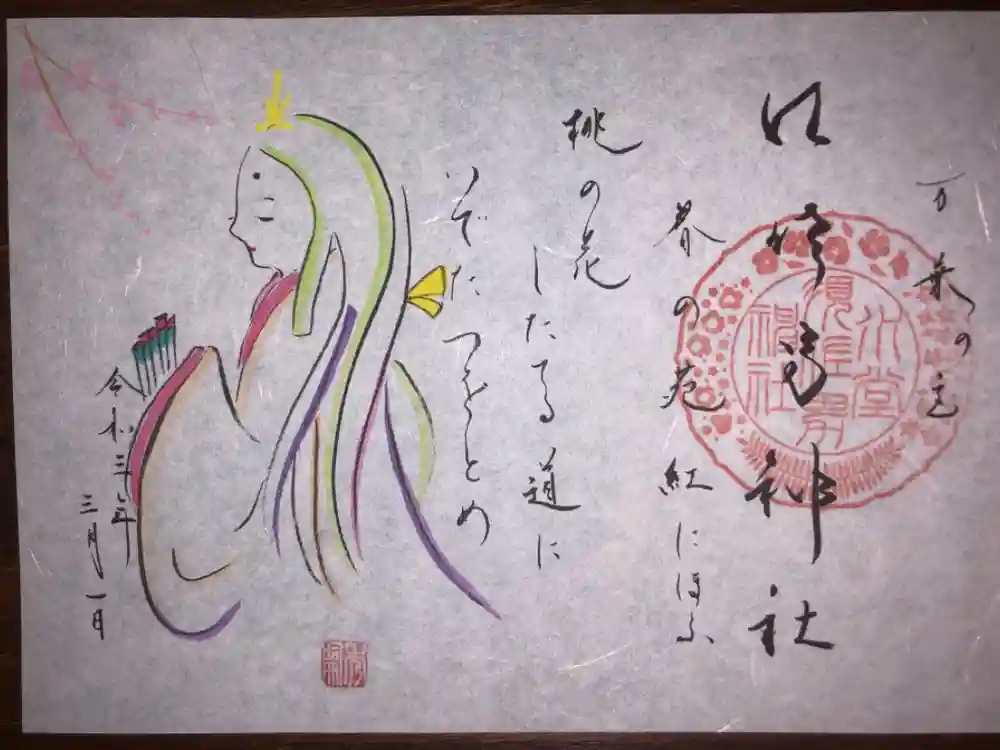 万葉の
神社
水堂
須佐男
神社
春の苑 紅にほふ
桃の花
したてる道に
いでたつをとめ
令和三年
三月一日